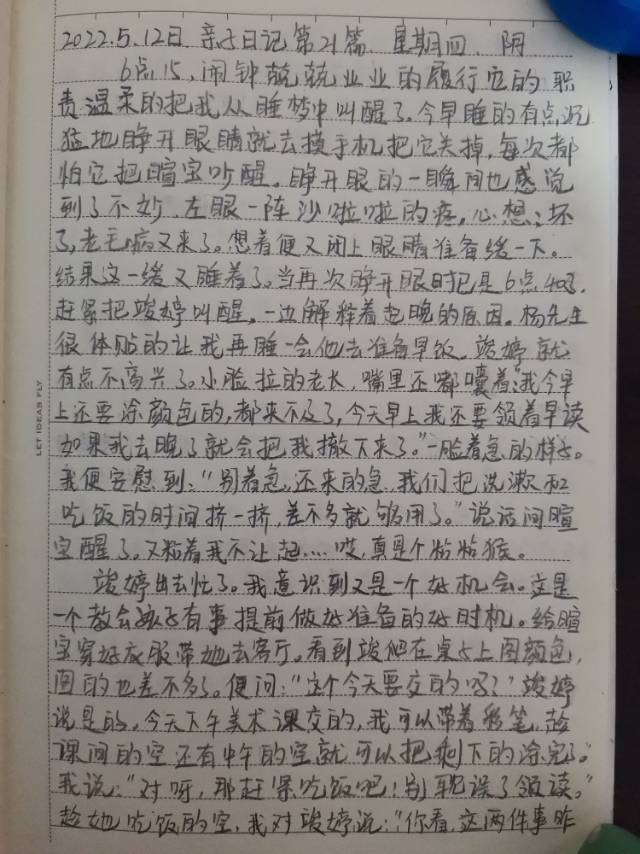 2022.5.12日 亲子日记第21篇 星期四、阴
6点15,闹钟兢兢业业的履行它的职
责温柔的把我从睡梦中叫醒了。今早睡的有点沉
猛地睁开眼睛就去摸手机把它关掉,每次都
怕它把暄宝吵醒。睁开眼的一瞬间也感觉
到了不妙、左眼一阵沙啦啦的疼,心想:坏
了,老毛病又来了。想着便又闭上眼睛准备缓一下。
结果这一缓又睡着了。当再次睁开眼时已是6点40了.
赶紧把竣婷叫醒。一边解释着起晚的原因。杨先生
很体贴的让我再睡一会他去准备早饭。竣婷就
有点不高兴了。小脸拉的老长,嘴里还嘟囔着:"我今早
上还要涂颜色的,都来不及了,今天早上我还要领着早读
如果我去晚了就会把我撤下来了。"一脸着急的样子。
我便安慰到:"别着急,还来的急.我们把洗漱和
吃饭的时间挤一挤,差不多就够用了。"说话间暄
宝醒了。又粘着我不让起....哎,真是个粘粘猴。
竣婷出去忙了。我意识到又是一个好机会。这是
一个教会孩子有事提前做好准备的好时机。给暄
宝穿好衣服带她去客厅。看到竣爬在桌子上图颜色,
图的也差不多了。便问:"这个今天要交的吗?"竣婷
说是的。今天下午美术课交的,我可以带着彩笔,趁
课间的空还有中午的空就可以把剩下的涂完了。"
我说:"对呀,那赶紧吃饭吧!别耽误了领读。"
趁她吃饭的空,我对竣婷说:"你看,这两件事昨
LET IDEAS FLY